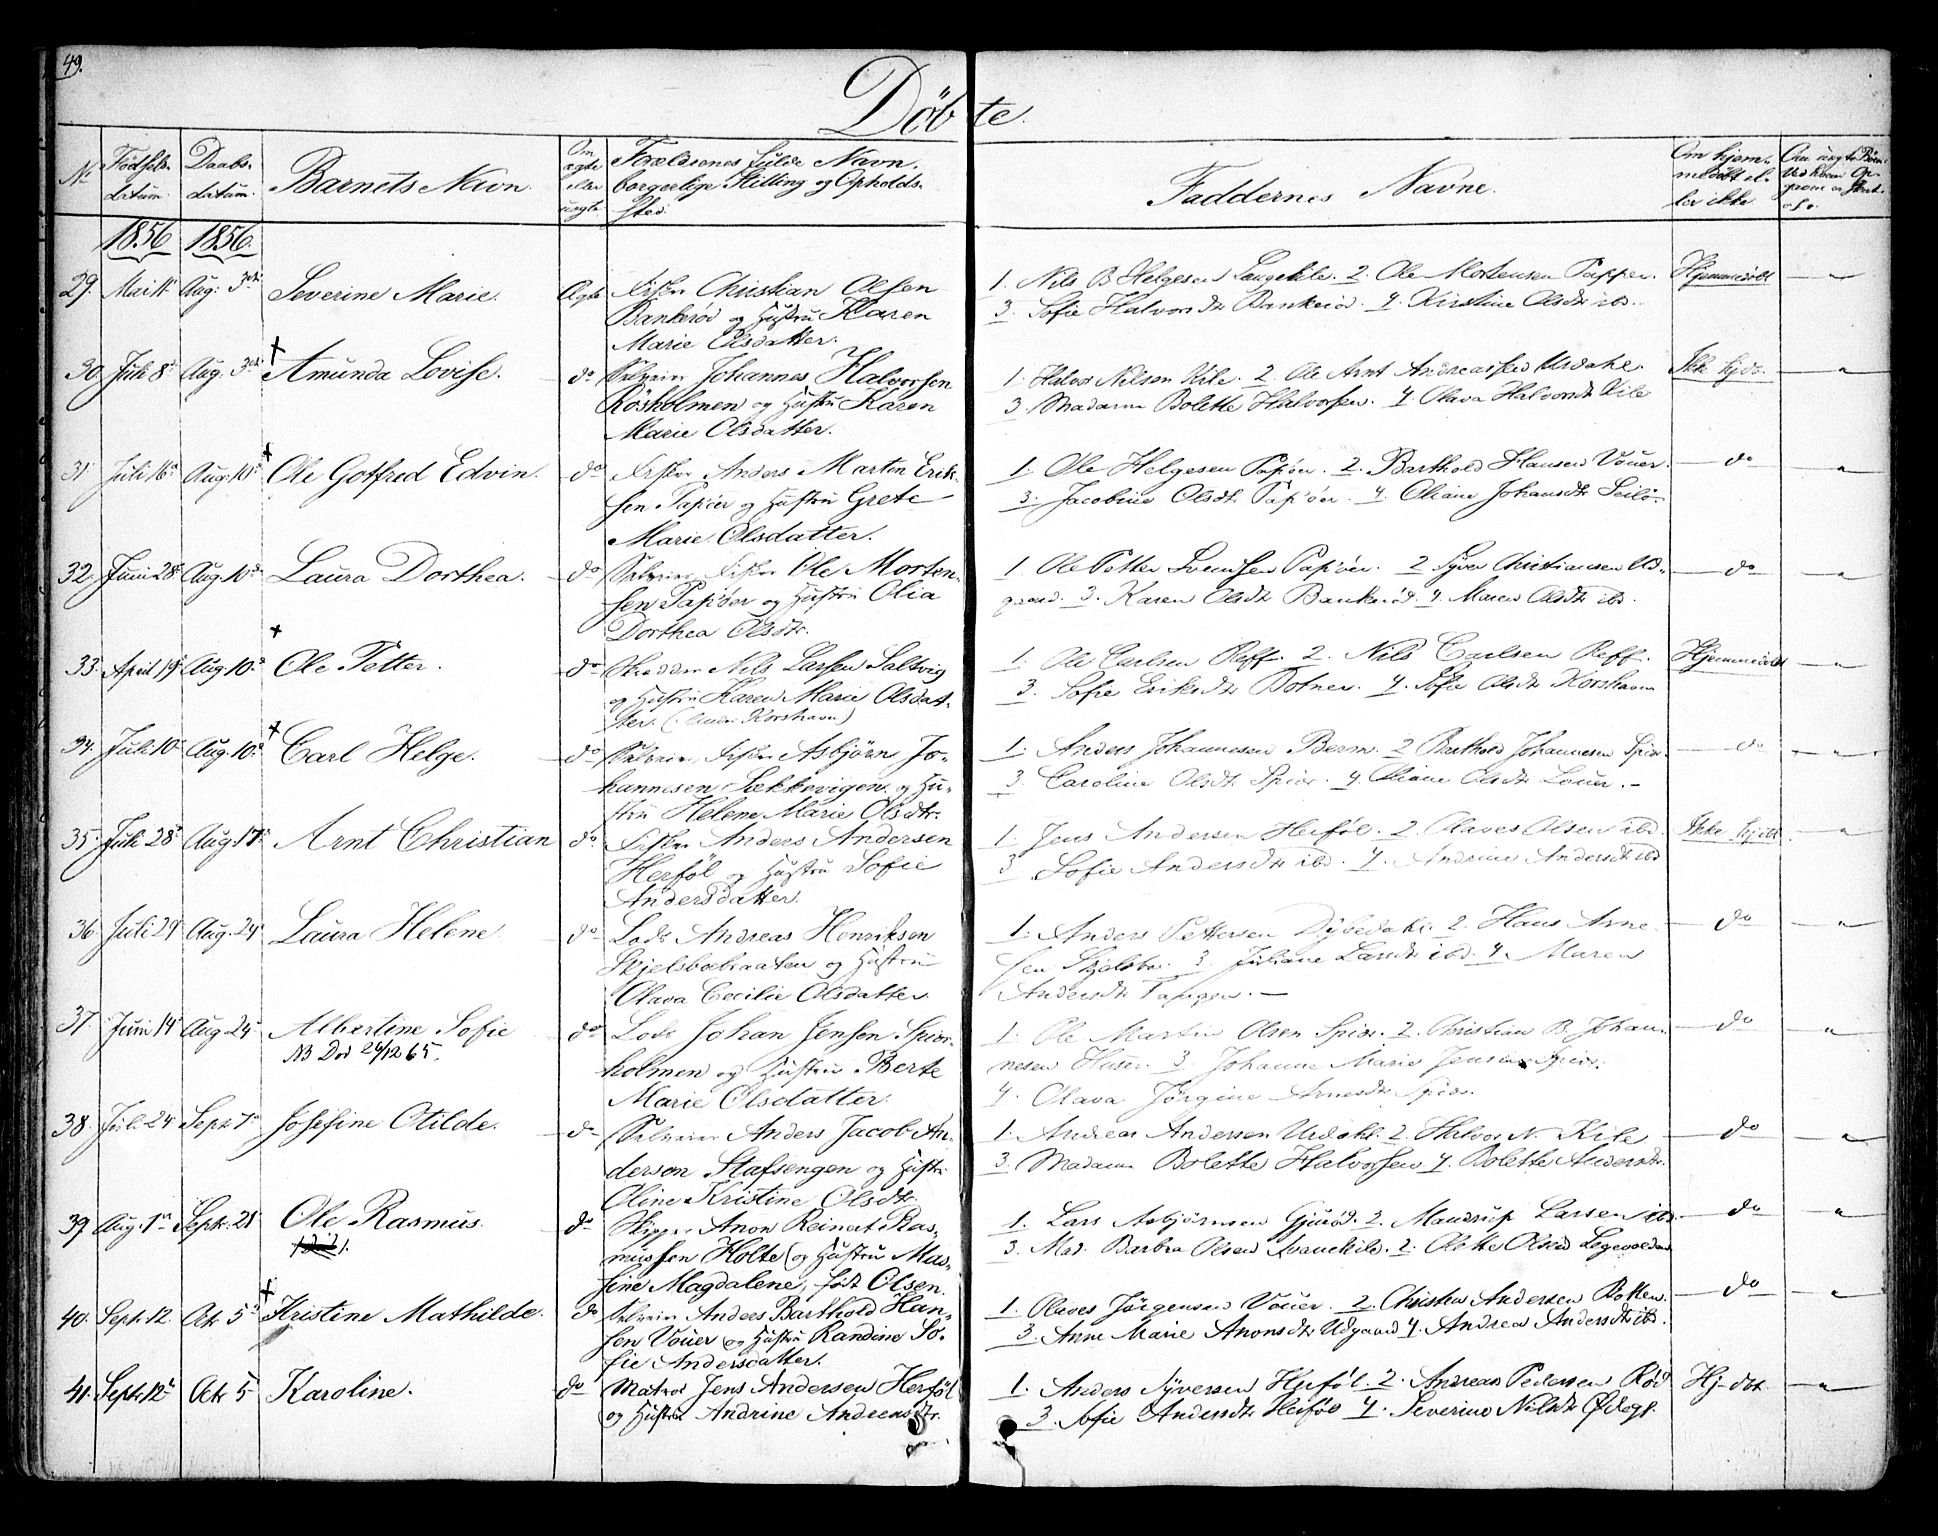 49.
Døbte.
No
Fødsels-
datum.
Daabs-
datum.
Barnets Navn.
Om
ægte
eller
uægte
Forældrenes fulde Navn.
borgerlige Stilling og Opholds-
sted.
Faddernes Navne.
Om hjem-
medøbt el-
ler ikke
1856 1856.
29. Mai 11 Aug. 3die Severine Marie. Ægte Fisker Christian Olsen
Bankerød og Hustru Karen
Marie Olsdatter.
1. Nils B Helgesen 2. Ole Mortensen Papper.
3. Sofie Halvorsdtr Bankerød 4. Kirstine Olsdtr ibd.
Hjemmedøbt
30. Juli 8d Aug. 3die Amunda Lovise. do Johannes Halvorsen
Røsholmen og Hustru Karen
Marie Olsdatter.
1. Halvor Nilsen Kile. 2. Ole Arnt Andreassen Urdahl.
3. Madame Bolette Halvorsen. 4. Olava Halvorsdtr Kile
Ikke hjdt.
31. Juli 16d Aug. 10d Ole Gotfred Edvin. do Fisker Anders Marten Erik-
sen Papøer og Hustru Grete
Marie Olsdatter.
1. Ole Helgesen Papøer. 2. Barthold Hansen Vouer.
3. Jacobine Olsdtr Papøer. 4. Oliane Johansdtr Seilø
do
32. Juni 28d Aug. 10d Laura Dorthea. do Fisker Ole Morten-
sen Papøer og Hustru Olia
Dorthea Olsdtr.
1 Ole Petter Svensen Papøer. 2 Syver Christiansen Ud-
gaard. 3. Karen Olsdtr Bankerød. 4. Maren Olsdtr ibd.
do
33. April 19d Aug. 10d Ole Petter. do Skrædder Nils Larsen Saltvig
og Hustru Karen Marie Olsdat-
ter. ( Korshavn)
1. Ole Carlsen Reff. 2. Nils Carlsen Reff.
3. Sofie Eriksdtr Botner. 4. Sofie Olsdtr Korshavn
Hjemmedøbt
34. Juli 10 Aug. 10d Carl Helge. do Fisker Asbjørn Jo-
hannesen Sækkevigen og Hu-
stru Helene Marie Olsdtr.
1. Anders Johannesen Berm. 2 Barthold Johannesen Spiør.
3. Caroline Olsdtr Spiør. 4. Oliane Olsdtr Louer.
do
35. Juli 28d Aug. 17d Arnt Christian do Fisker Anders Andersen
Herføl og Hustru Sofie
Andersdatter.
1. Jens Andersen Herføl. 2. Olaves Olsen ibd.
3. Sofie Andersdtr ibd. 4. Andrine Andersdtr ibd
Ikke hjdt
36. Juli 29 Aug. 24 Laura Helene do Lods Andreas Henriksen
Skjelsbobraaten og Hustru
Olava Cecilie Olsdatter.
1. Anders Pettersen Dybedahl. 2. Hans Arne-
sen Skjelsbo. 3. Juliane Larsdtr ibd. 4. Maren
Andersdtr Tangen.
do
37. Juni 14 Aug. 24 Albertine Sofie do Lods Johan Jensen Spiør-
NB Død 26/12 65.
holmen og Hustru Berte
Marie Olsdatter.
1. Ole Martin Olsen Spiør. 2. Christian B. Johan-
nesen Huser. 3. Johanne Marie Jensen Spiør.
4. Olava Jørgine Arnesdtr Spiør.
do
38. Juli 24 Sept. 7d Josefine Otilde. do Anders Jacob An-
dersen Stafsengen og Hustr.
Oline Kristine Olsdtr
1. Andreas Andersen Urdahl. 2. Halvor N. Kile
3. Madame Bolette Halvorsen 4. Bolette Andersdtr.
do
39. Aug. 1st Sept. 21 Ole Rasmus. do Skipper Anon Reinert Ras-
mussen Holte (og Hustru Mas-
sine Magdalene, født Olsen.
1. Lars Asbjørnsen Gjurød. 2. Mandrup Larsen ibd.
3. Mad. Barbra Olsen Svanekild. 2. Olette Olsen
do
40. Sept. 12 Oct. 5d Kristine Mathilde. do Anders Barthold Han-
sen Vouer og Hustru Randine So-
fie Andersdatter.
1. Olaves Jørgensen Vouer. 2. Christen Andersen Botten.
3. Anne Marie Anonsdtr Udgaard 4. Andrea Andersdtr ibd.
do
41. Sept. 12 Octr 5 Karoline. do Matros Jens Andersen Herføl
og Hustru Andrine Andreasdtr.
1. Anders Syversen Herføl. 2. Andreas Pedersen Rød
3. Sofie Andersdtr Herføl 4. Severine Nilsdtr Ødegf.
Hj-døt.